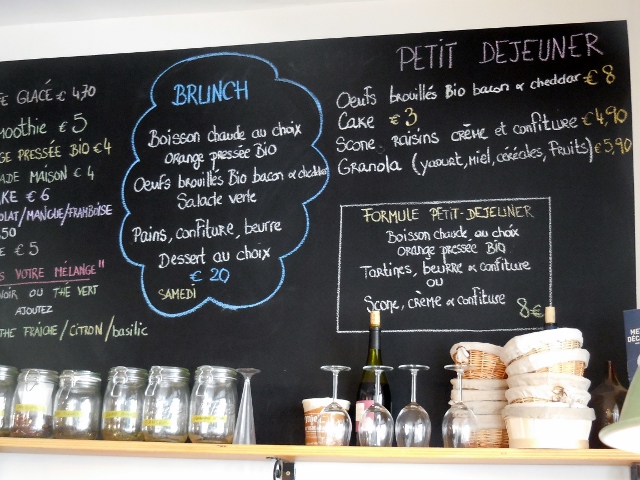 FE GLACÉ € 4,70
moothie € 5
GE PRESSÉE BIO € 4
ADE MAISON € 4
KE € 6
OLAT/MANGUE/FRAMBOISE
50
E € 5
S VOTRE MÉLANGE"
NOIR OU THÉ VERT
AJOUTEZ
THE FRAÎCHE/CITRON/basilic
BRUNCH
Boisson chaude au choix
Orange pressée Bio
Oeufs brouillés Bio bacon & cheddar
Salade verte
Pains, confiture, beurre
Dessert au choix
€ 20
SAMEDI
PETIT DEJEUNER
Oeufs brouillés Bio bacon & cheddar € 8
Cake € 3
Scone raisins crème et confiture € 4,90
Granola (yaourt, miel, céréales, fruits) € 5,90
FORMULE PETIT-DEJEUNER
Boisson chaude au choix
Orange pressée Bio
Tartines, beurre & confiture
OU
Scone, crème & confiture
8€